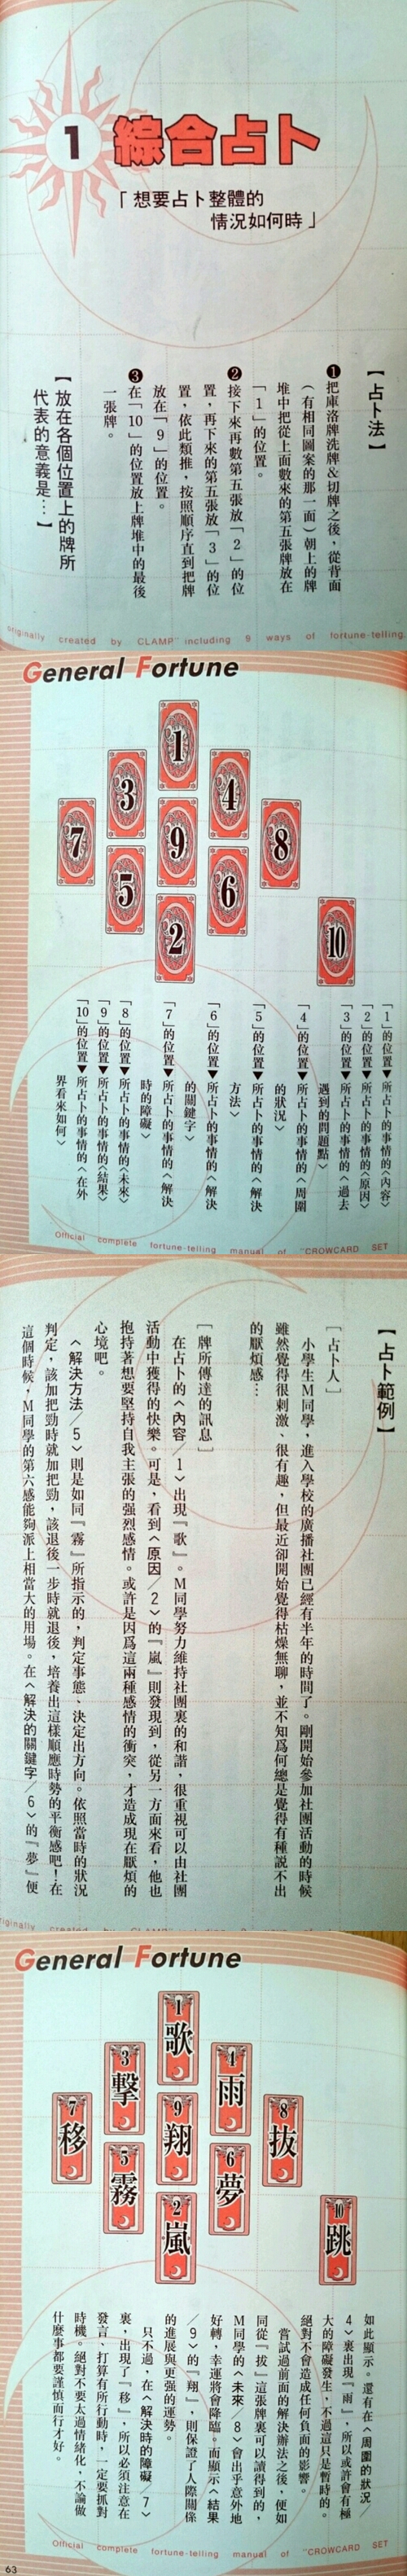 1
綜合占卜
「想要占卜整體的
情況如何時」
【占卜法】
❶把庫洛牌洗牌&切牌之後，從背面
（有相同圖案的那一面）朝上的牌
堆中把從上面數來的第五張牌放在
「1」的位置。
❷接下來再數第五張放「2」的位
置，再下來的第五張放「3」的位
置，依此類推，按照順序直到把牌
放在「9」的位置。
❸在「10」的位置放上牌堆中的最後
一張牌。
【放在各個位置上的牌所
代表的意義是…】
originally created by CLAMP" including 9 ways of fortune-telling.
General Fortune
1
3
4
7
9
8
5
6
2
10
「1」的位置▼所占卜的事情的〈內容〉
「2」的位置▼所占卜的事情的〈原因〉
「3」的位置▼所占卜的事情的〈過去
遇到的問題點〉
「4」的位置▼所占卜的事情的〈周圍
的狀況〉
「5」的位置▼所占卜的事情的〈解決
方法〉
「6」的位置▼所占卜的事情的〈解決
的關鍵字〉
「7」的位置▼所占卜的事情的〈解決
時的障礙〉
「8」的位置▼所占卜的事情的〈未來〉
「9」的位置▼所占卜的事情的〈結果〉
「10」的位置▼所占卜的事情的〈在外
界看來如何〉
Official complete fortune-telling manual of "CROWCARD SET
【占卜範例】
［占卜人］
小學生M同學，進入學校的廣播社團已經有半年的時間了。剛開始參加社團活動的時候
雖然覺得很刺激、很有趣，但最近卻開始覺得枯燥無聊，並不知爲何總是覺得有種說不出
的厭煩感…
［牌所傳達的訊息］
在占卜的〈內容／1〉出現『歌』。M同學努力維持社團裏的和諧，很重視可以由社團
活動中獲得的快樂。可是，看到〈原因／2〉的『嵐』則發現到，從另一方面來看，他也
抱持著想要堅持自我主張的强烈感情。或許是因爲這兩種感情的衝突，才造成現在厭煩的
心境吧。
〈解決方法／5〉則是如同『霧』所指示的，判定事態、決定出方向。依照當時的狀況
判定，該加把勁時就加把勁，該退後一步時就退後，培養出這樣順應時勢的平衡感吧！在
這個時候，M同學的第六感能夠派上相當大的用場。在〈解決的關鍵字／6〉的『夢』便
General Fortune
1 歌
3 擊
4 雨
7 移
9 翔
8 抜
5 霧
6 夢
2 嵐
10 跳
如此顯示。還有在〈周圍的狀況／
4〉裏出現『雨』，所以或許會有極
大的障礙發生，不過這只是暫時的。
絕對不會造成任何負面的影響。
嘗試過前面的解決辦法之後，便如
同從『拔』這張牌裏可以讀得到的，
M同學的〈未來／8〉會出乎意外地
好轉，幸運將會降臨。而顯示〈結果
／9〉的『翔』，則保證了人際關係
的進展與更强的運勢。
只不過，在〈解決時的障礙／7〉
裏，出現了『移』，所以必須注意在
發言、打算有所行動時，一定要抓對
時機。絕對不要太過情緒化，不論做
什麼事都要謹慎而行才好。
Official complete fortune-telling manual of "CROWCARD SET
63